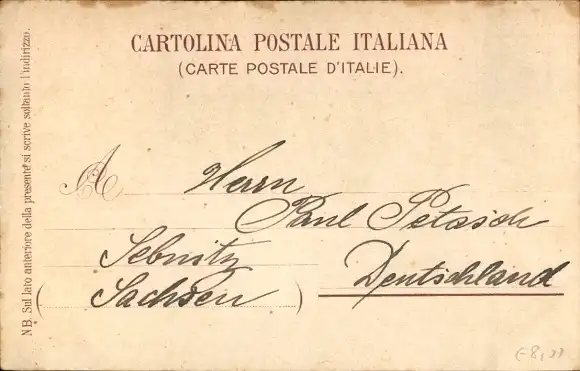 CARTOLINA POSTALE ITALIANA
(CARTE POSTALE D'ITALIE).
NB. Sul lato anteriore della presente si scrive soltanto l'indirizzo.
A Herrn
Paul Petasch
Sebnitz
(Sachsen)
Deutschland